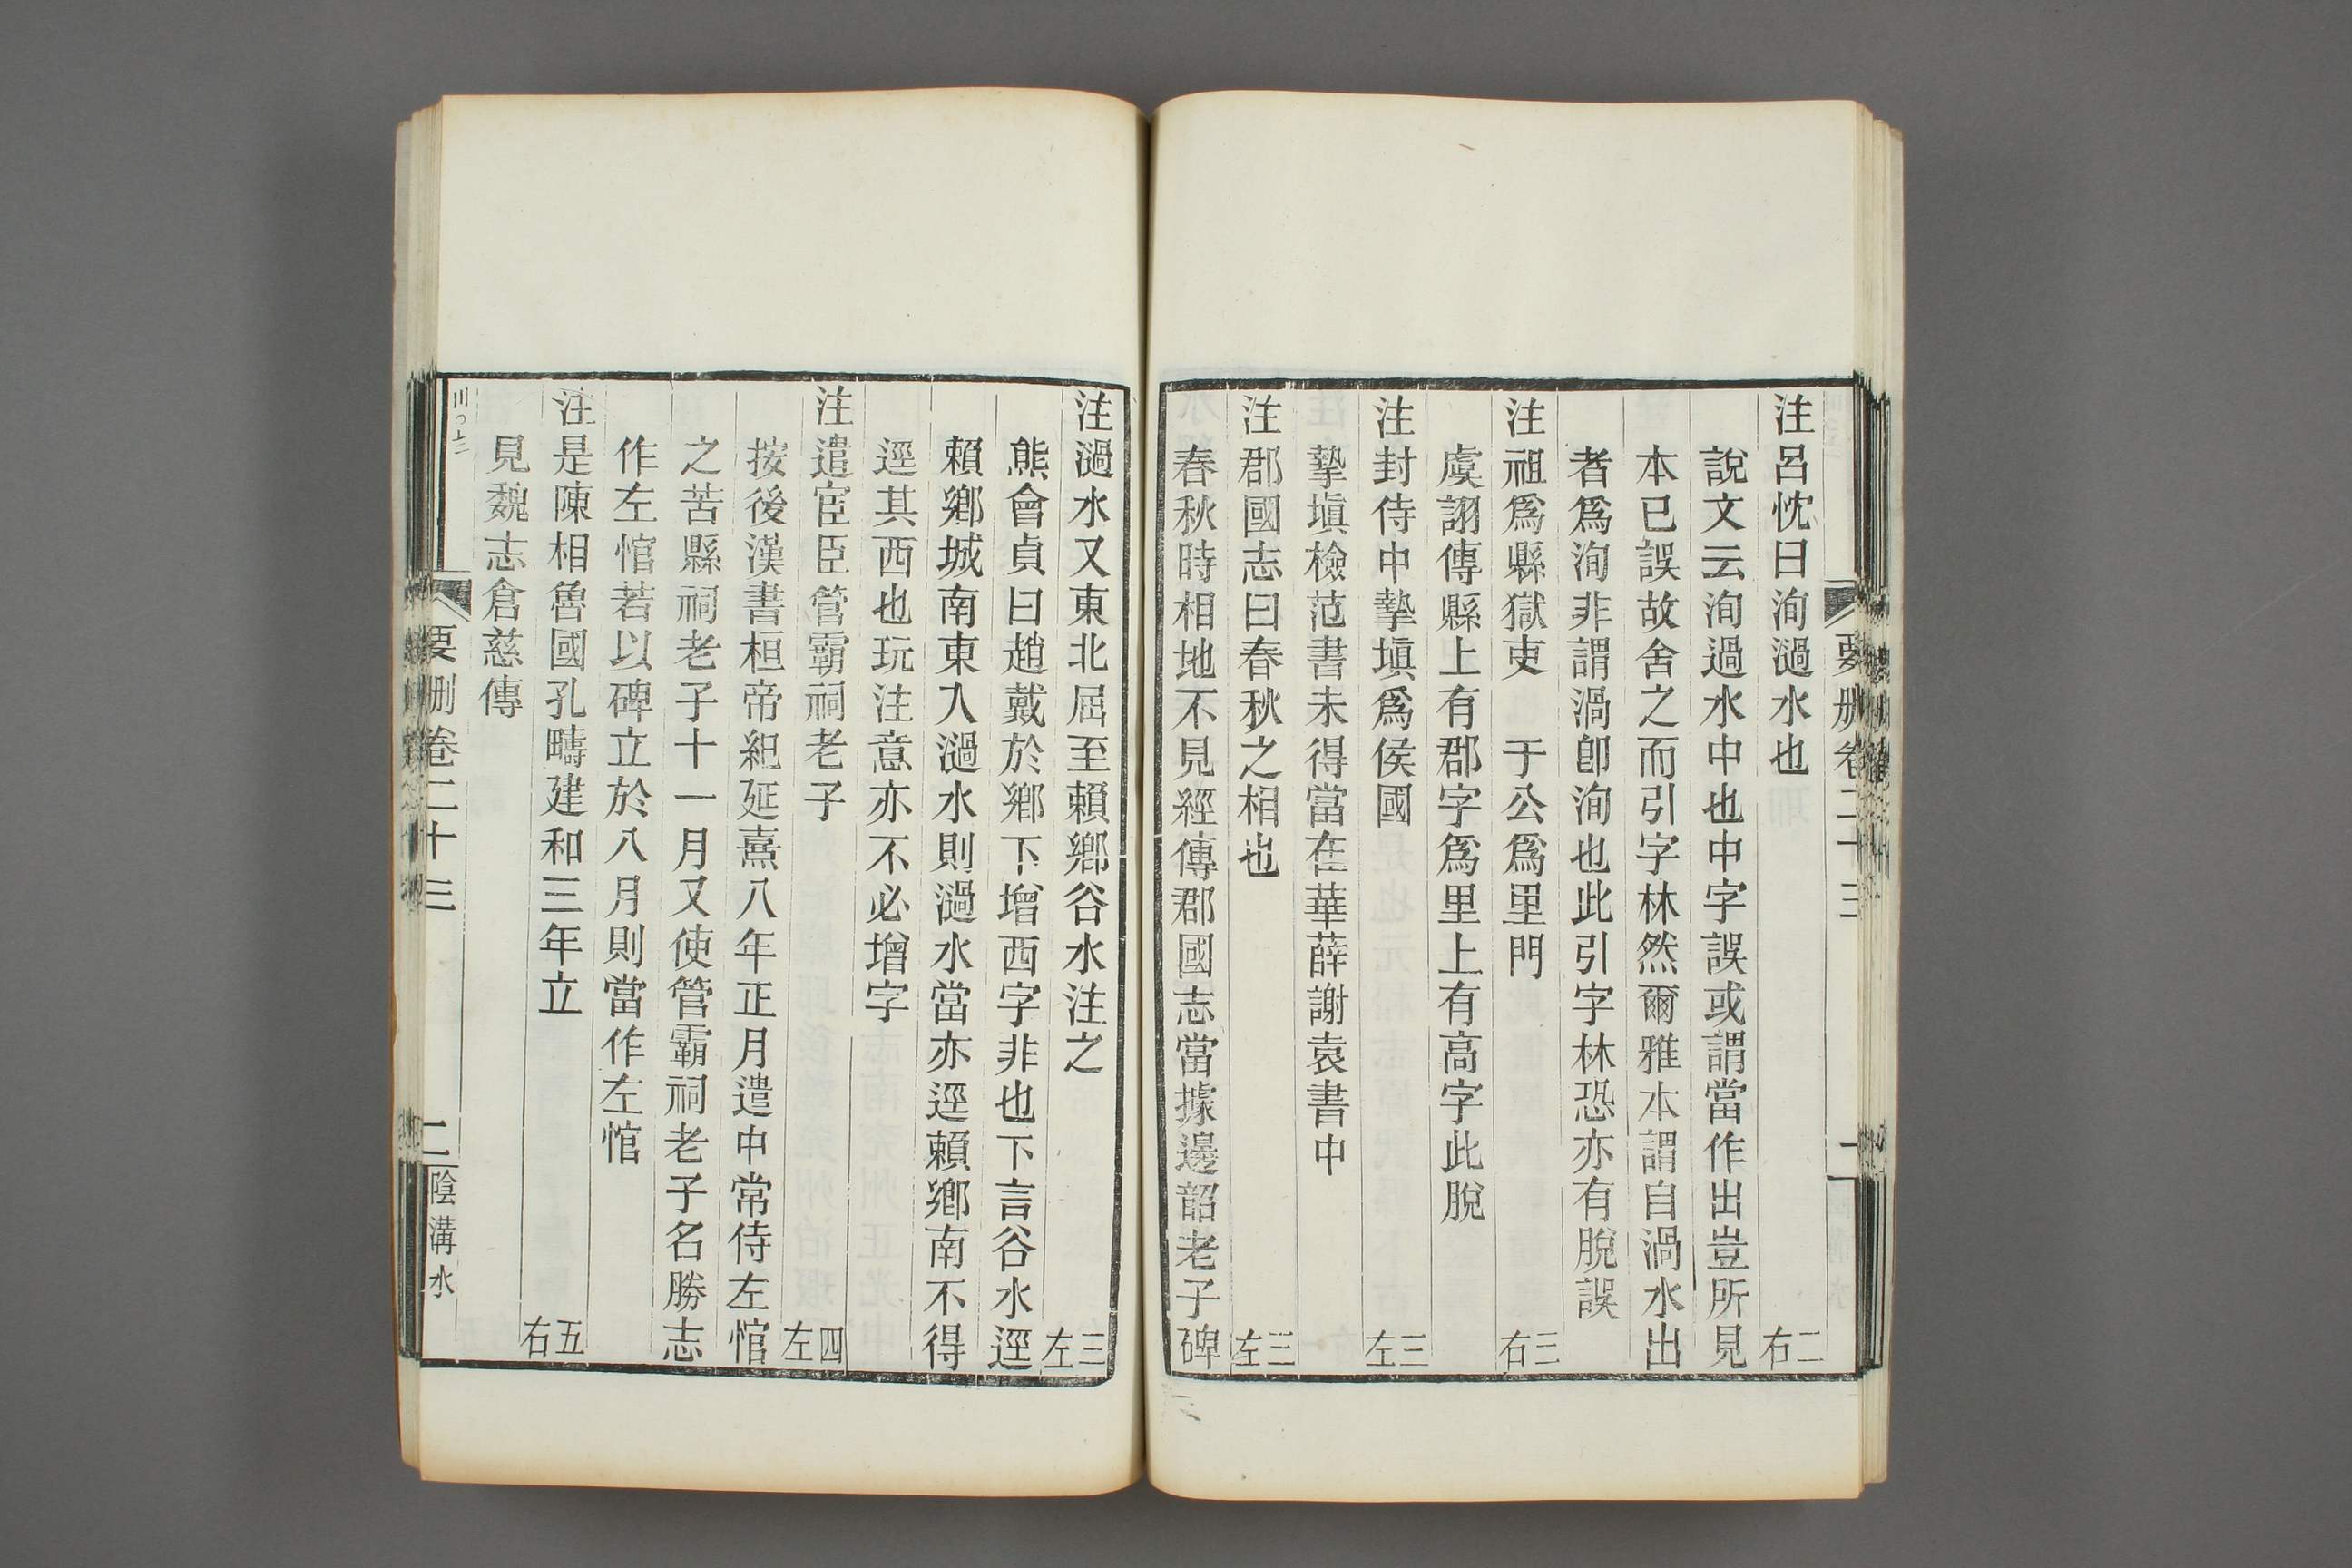 注呂忱曰洵濄水也 二右
說文云洵過水中也中字誤或謂當作出豈所見
本已誤故舍之而引字林然爾雅本謂自渦水出
者爲洵非謂渦卽洵也此引字林恐亦有脫誤
注祖爲縣獄吏 于公爲里門 三右
虞詡傳縣上有郡字爲里上有高字此脫
注封侍中摯塡爲侯國 三左
摯塡檢范書未得當在華薛謝袁書中
注郡國志曰春秋之相也 三左
春秋時相地不見經傳郡國志當據邊韶老子碑
注濄水又東北屈至賴鄉谷水注之 三左
熊會貞曰趙戴於鄉下增西字非也下言谷水逕
賴鄉城南東入濄水則濄水當亦逕賴鄉南不得
逕其西也玩注意亦不必增字
注遣宦臣管霸祠老子 四左
按後漢書桓帝紀延熹八年正月遣中常侍左悺
之苦縣祠老子十一月又使管霸祠老子名勝志
作左悺若以碑立於八月則當作左悺
注是陳相魯國孔疇建和三年立 五右
見魏志倉慈傳
要刪卷二十三 二 陰溝水